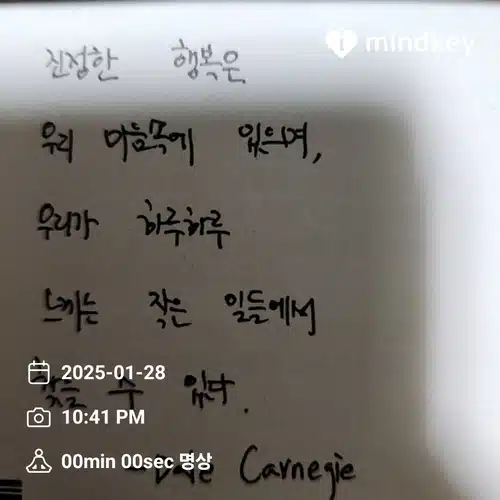 mindkey
진정한 행복은
우리 마음속에 있으며,
우리가 하루하루
느끼는 작은 일들에서
찾을 수 있다.
2025-01-28
10:41 PM
00min 00sec 명상
- Dale Carnegie